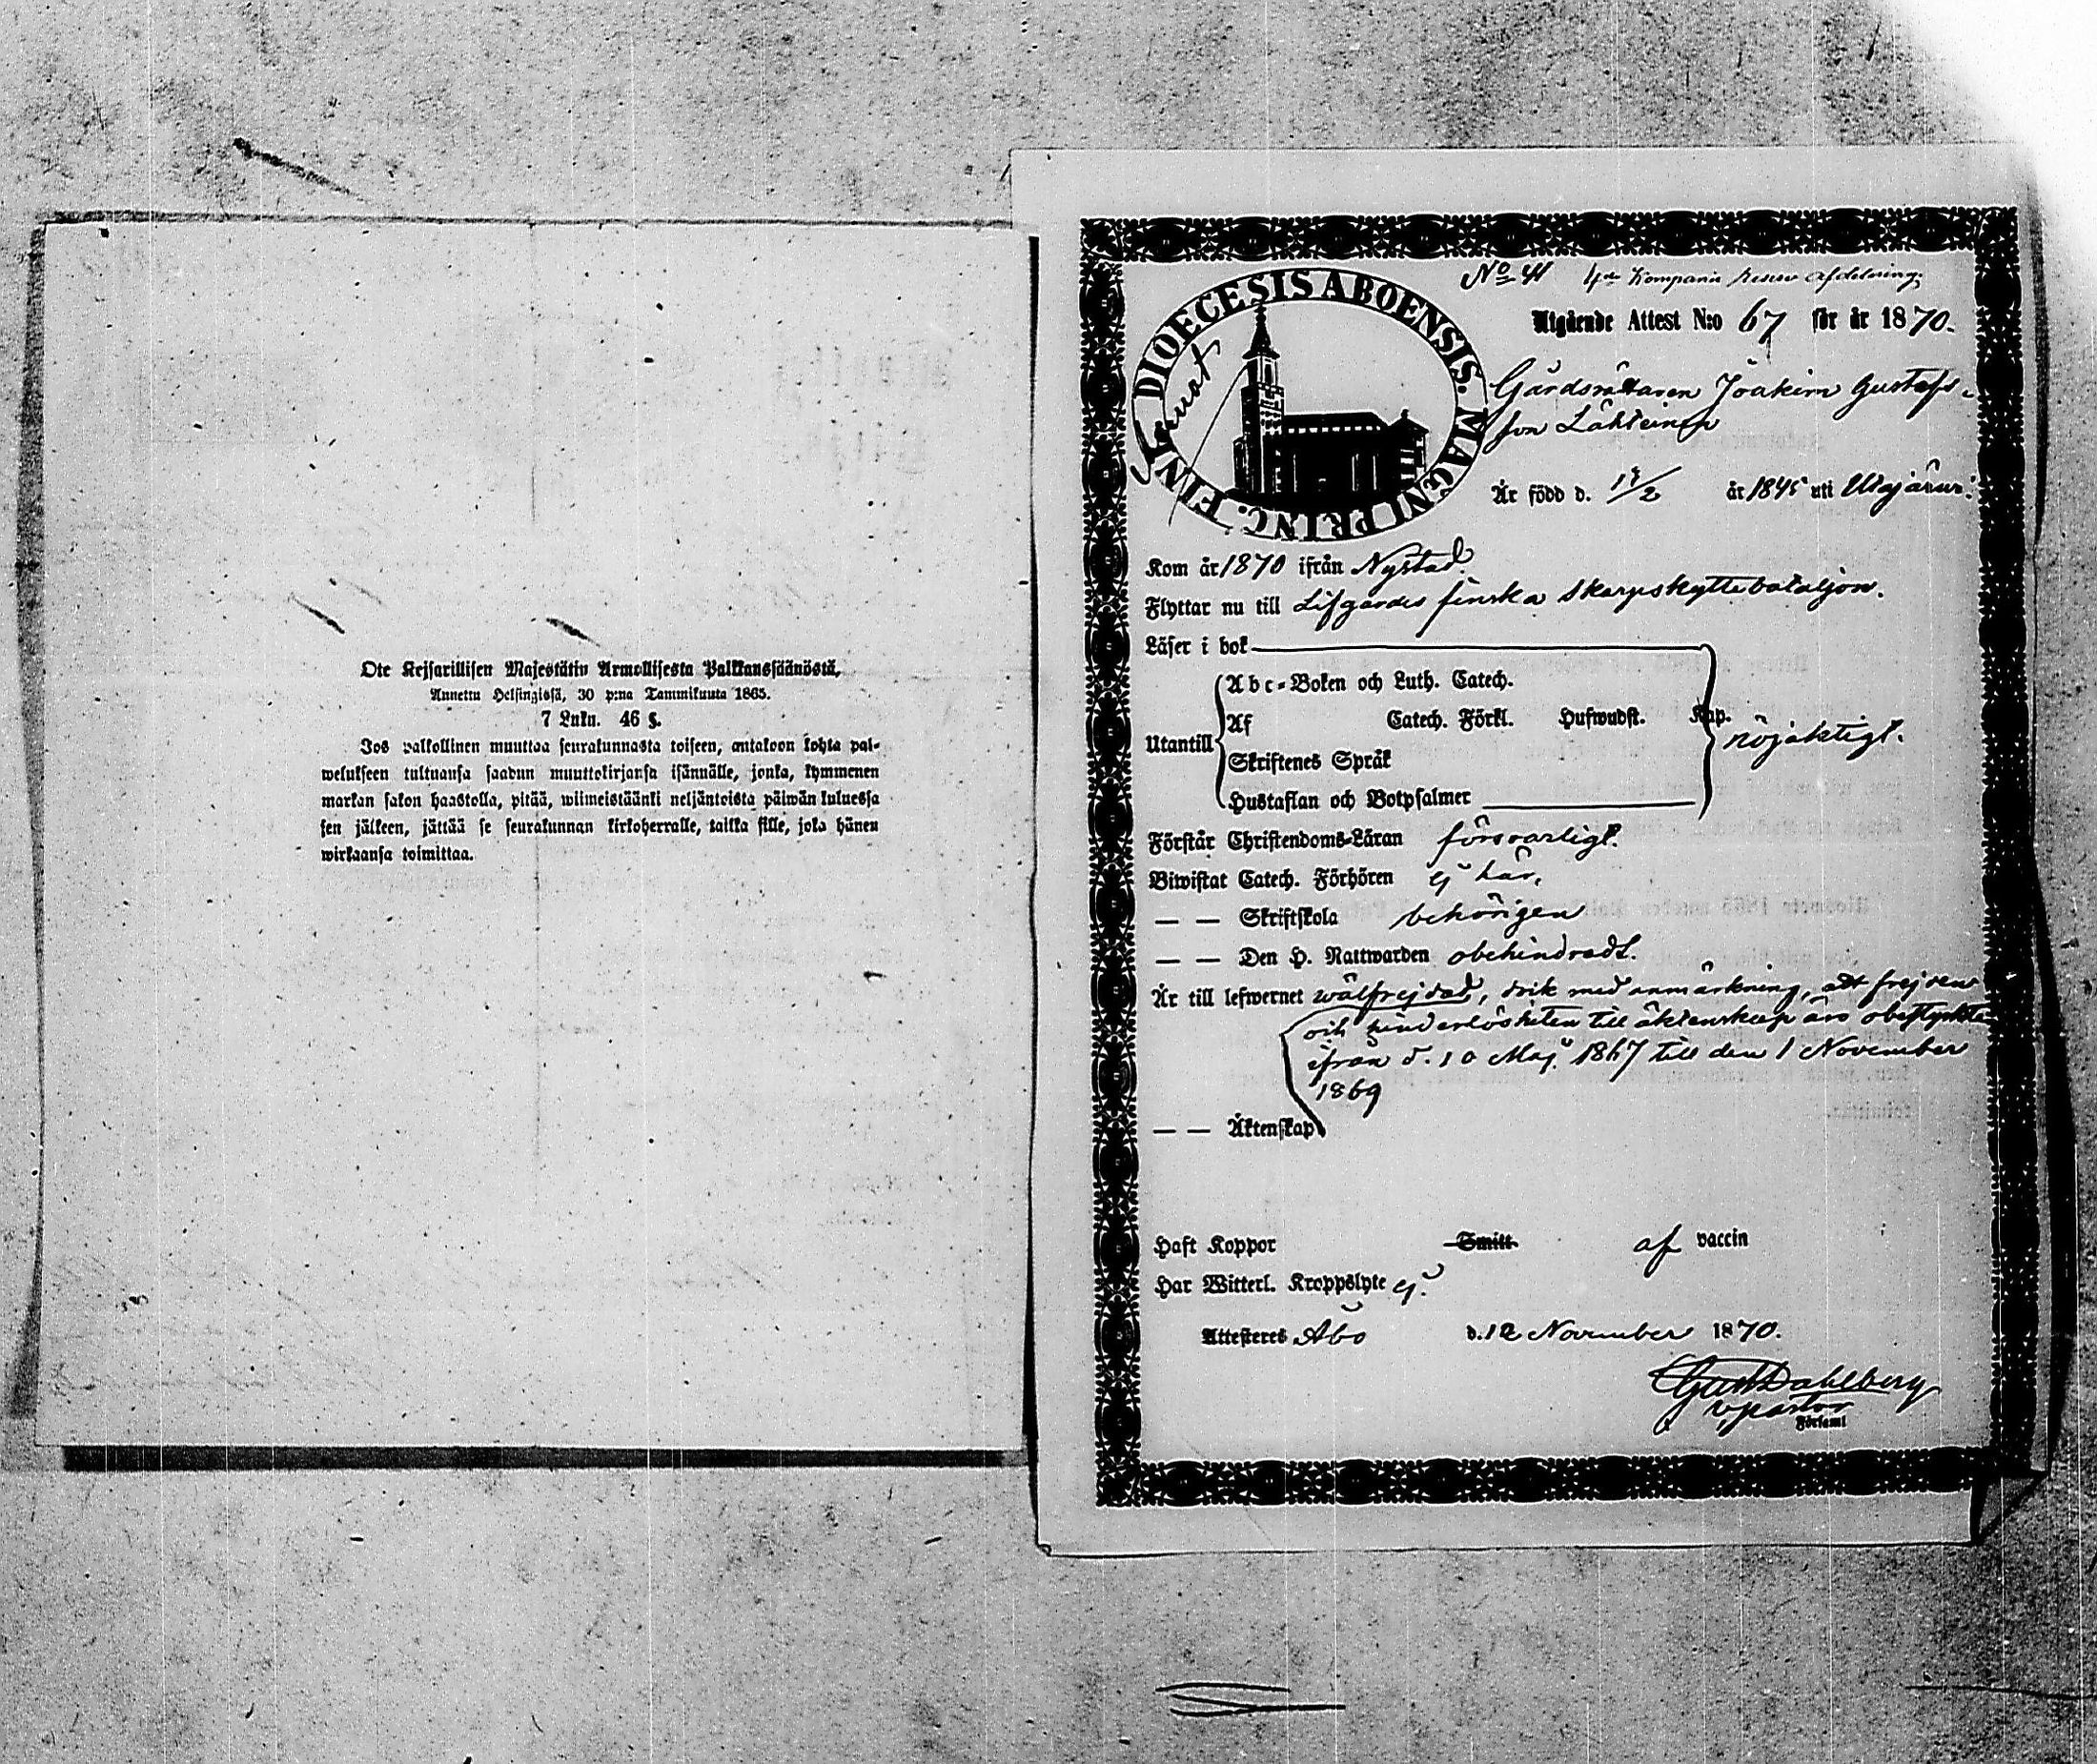 Ote Keisarillisen Majestätin Armollisesta Palkkaussäännöstä,
Annettu Helsingissä, 30 p:nä Tammikuuta 1865.
7 Luku. 46 §.
Jos palkollinen muuttaa seurakunnasta toiseen, antakoon kohta pal-
welukseen tultuansa saadun muuttokirjansa isännälle, jonka, kymmenen
markan sakon haastolla, pitää, wiimeistäänki neljäntoista päiwän kuluessa
sen jälkeen, jättää se seurakunnan kirkoherralle, taikka sille, joka hänen
wirkaansa toimittaa.
DIOECESIS ABOENSIS. MAGNI PRINC. FINL.
No 41 4de Kompanie Reserv Afdelning
Utgående Attest N:o 67 för år 1870.
Gårdsrättaren Joakim Gustafs-
son Lähteinen
Är född d. /2 år 1845 uti
Kom år 1870 ifrån Nystad.
Flyttar nu till Lifgardes finska Skarpskyttebataljon.
Läser i bok
Abc-Boken och Luth. Catech.
Af Catech. Förkl. Hufwudst. Kap.
Utantill
nöjaktigt.
Skriftenes Språk
Hustaflan och Botpsalmer
Förstår Christendoms-Läran försvarligt.
Biwistat Catech. Förhören ej här.
— — Skriftskola behörigen
— — Den H. Nattwarden obehindradt.
Är till lefwernet wälfrejdad, dock med anmärkning, att frejden
och hinderlösheten till äktenskap äro obestyrkta
ifrån d. 10 Maj 1867 till den 1 November
1869
— — Äktenskap
Haft Koppor Smitt af vaccin
Har Witterl. Kroppslyte ej.
Attesteres Åbo d. 12 November 1870.
Gust Dahlberg
v pastor
Församl